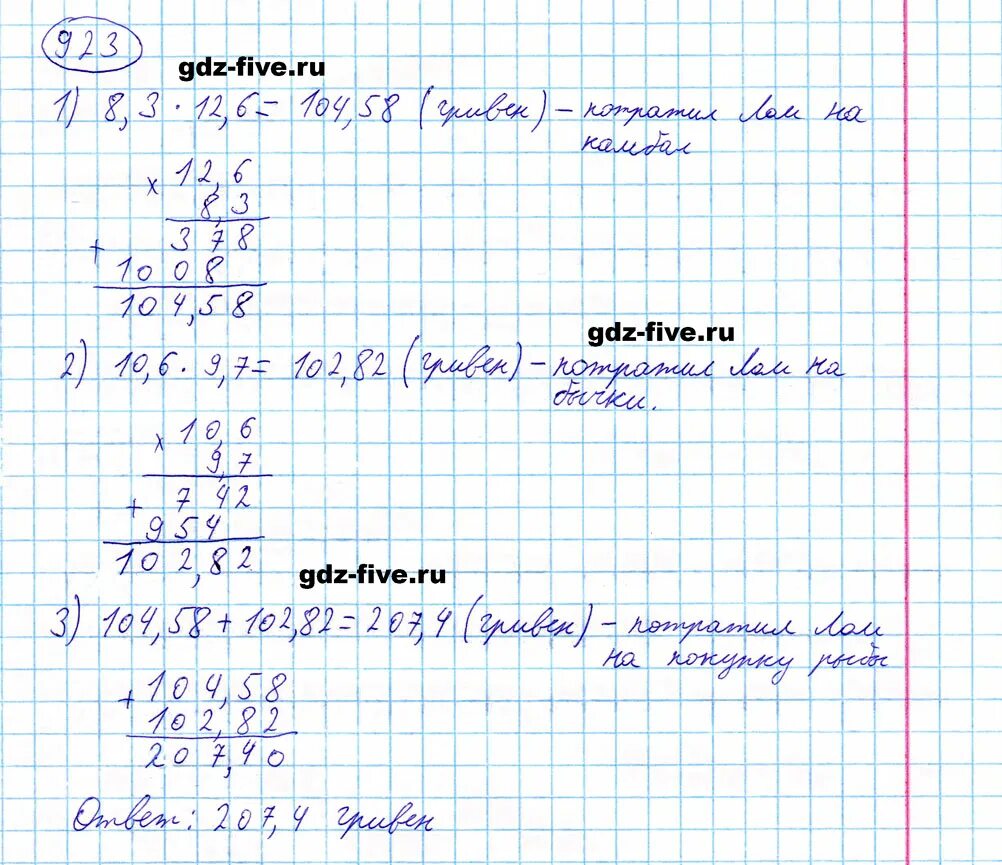 923
gdz-five.ru
1) 8,3 · 12,6 = 104,58 (гривен) – потратил Лом на
камбал
× 12,6
8,3
+ 378
1008
104,58
gdz-five.ru
2) 10,6 · 9,7 = 102,82 (гривен) – потратил Лом на
бычки.
× 10,6
9,7
+ 742
954
102,82
gdz-five.ru
3) 104,58 + 102,82 = 207,4 (гривен) – потратил Лом
на покупку рыбы
+ 104,58
102,82
207,40
Ответ: 207,4 гривен